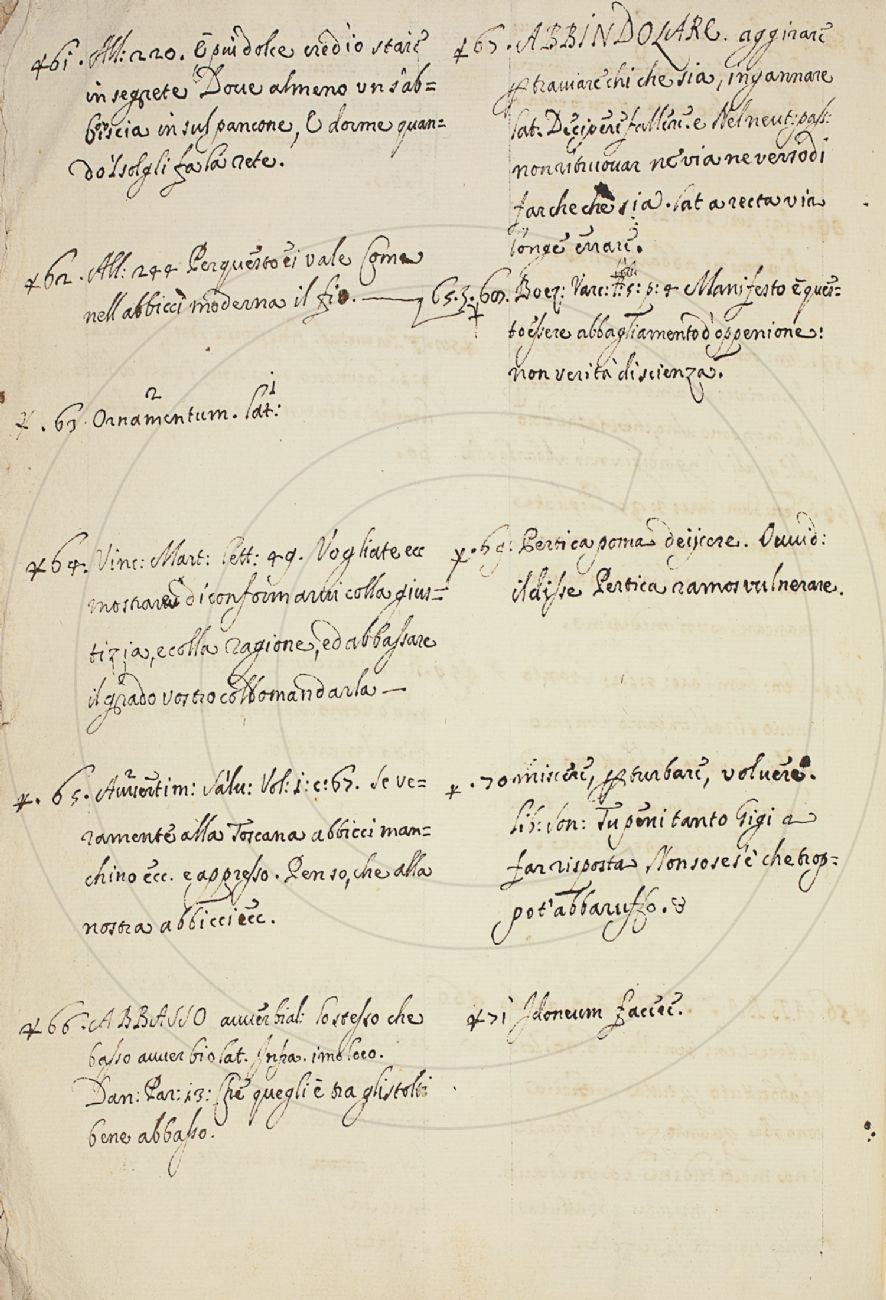 61. All: 220. E piu dolce cred'io stare
in segrete Doue almeno un s'ab=
biscia in sul pancone, E dorme quan=
do 'l sol gli fa la rete.
62. All: 244 Per questo ei vale Come
nell'abbiccì moderna il fio.
63. Ornamentum. lat:
64. Vinc: Mart: lett: 49. Vogliate ecc
mostrare di conformarui colla gius=
tizia, e colla ragione, ed abbassare
il grado vostro coll'omandarla —
65. Auuertim: Salu: Vol: 1: c: 67. Se ve=
ramente alla Toscana abbiccì man=
chino ecc. e appresso. Penso, che alla
nostra abbiccì ecc.
66. ABBASSO auuerbial: lo stesso che
basso auuerbio lat. Infra. imo loco.
Dan: Par: 13: Che quegli è tra gli stolti
bene abbasso.
67. ABBINDOLARE. aggirare
per trauiare chi che sia, ingannare
lat. Decipere fallere. e Nel neut: pass:
non ritruouar ne via ne verso di
far che che sia. lat a recta via
longe errare.
65.3. 68. Boez: Varc: 5: p: 4 Manifesto è ques=
to essere abbagliamento d'oppenione:
non verità di scienza.
69: Pertica poma deijcere. Ouuid:
il disse Pertica ramos vulnerare.
70 miscere, perturbare, voluere.
lib: son: Tu peni tanto Gigi a
far risposta Non so se s'è che trop=
po t'abbaruffo.
71 Idoneum facere.